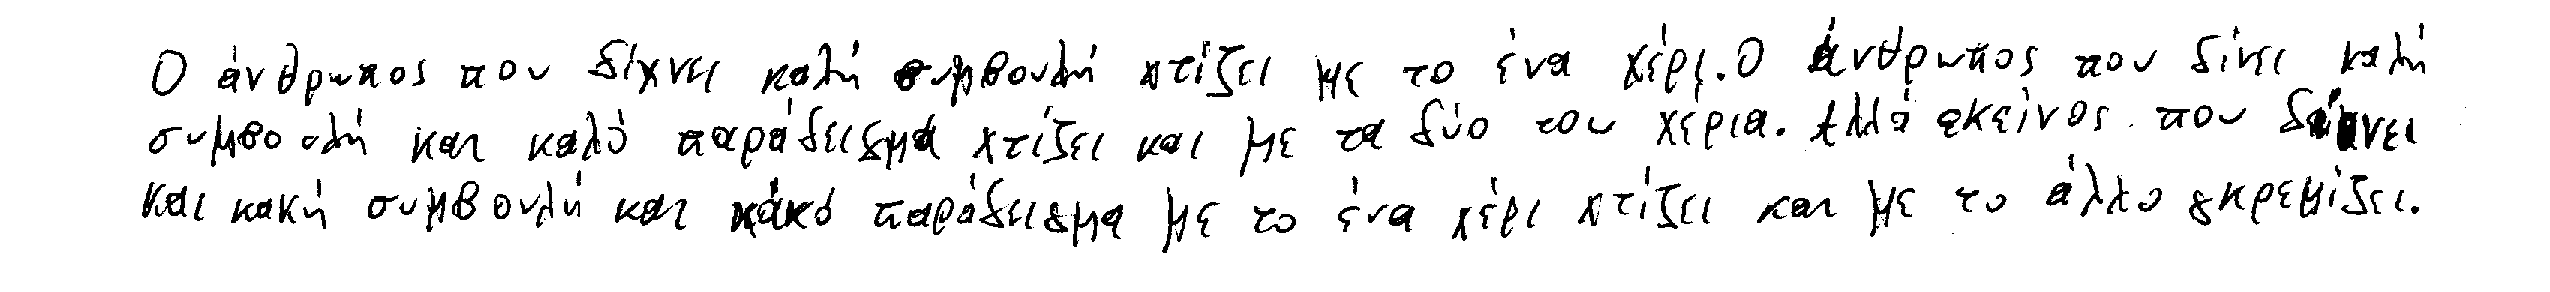 Ο άνθρωπος που δίχνει καλή συμβουλή χτίζει με το ένα χέρι. Ο άνθρωπος που δίνει καλή
συμβουλή και καλό παράδειγμα χτίζει και με τα δύο του χέρια. Αλλά εκείνος που δίνει
και κακή συμβουλή και κακό παράδειγμα με το ένα χέρι χτίζει και με το άλλο γκρεμίζει.